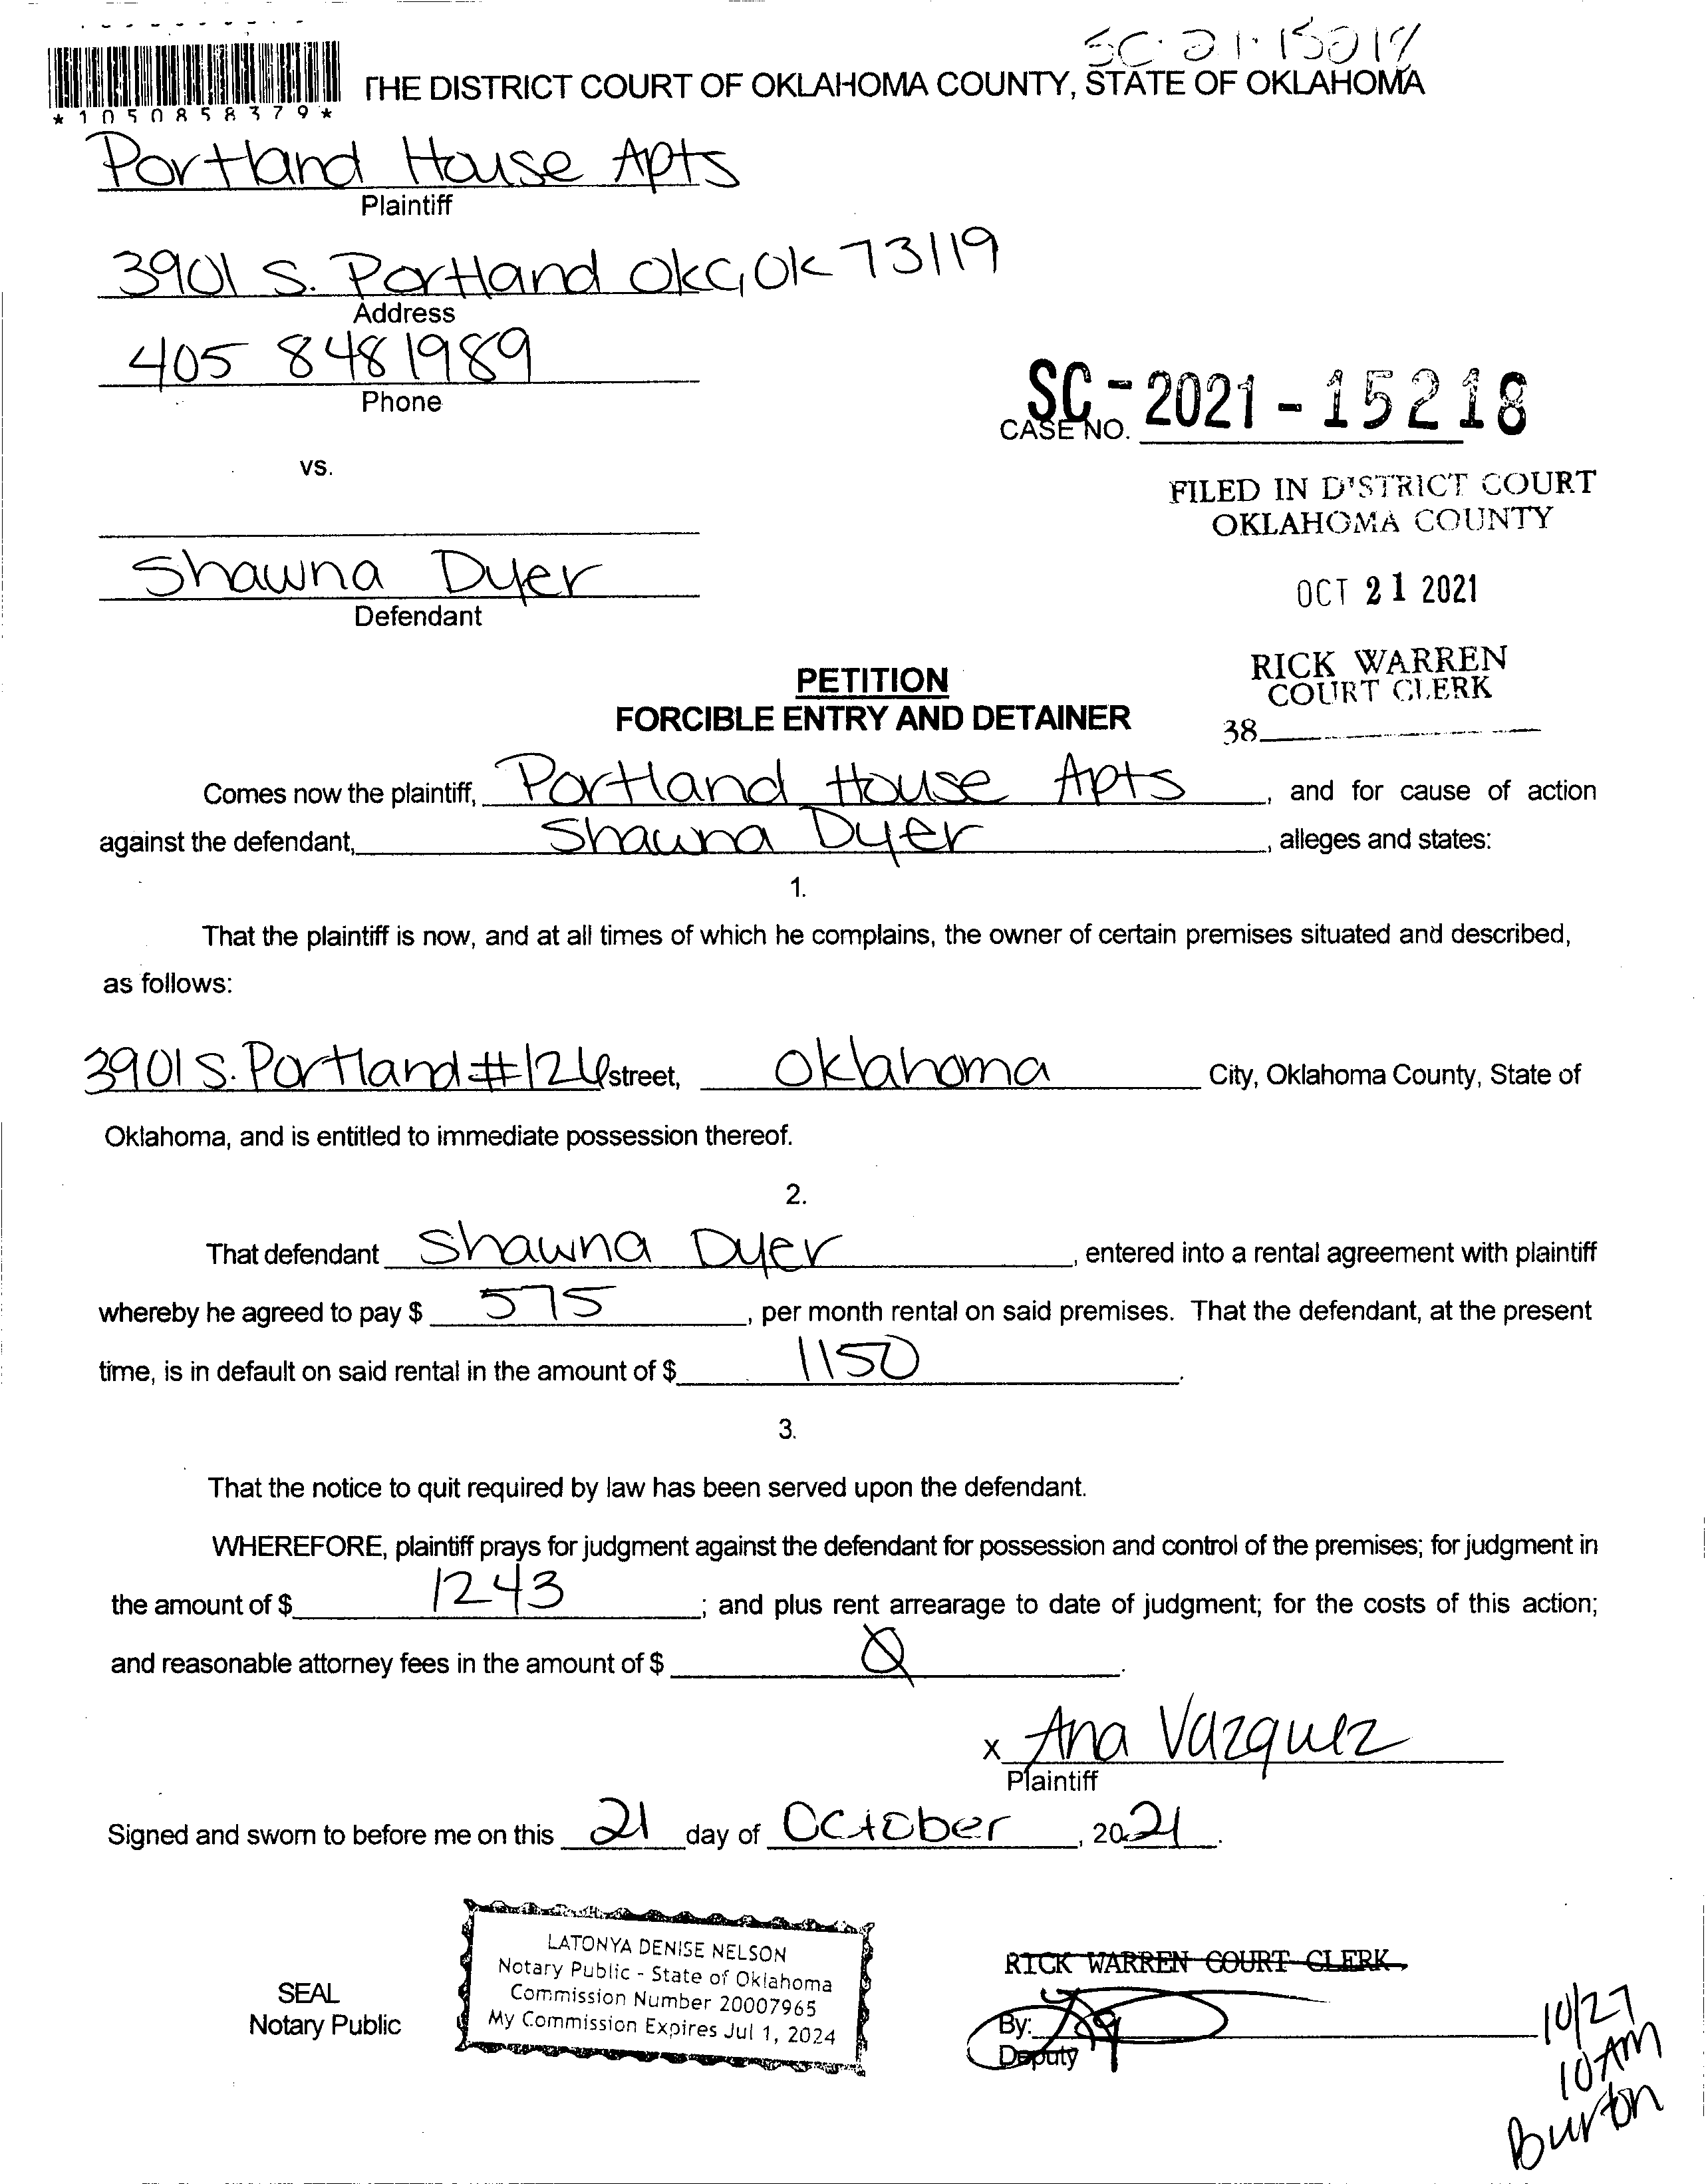 SC-21-15218
THE DISTRICT COURT OF OKLAHOMA COUNTY, STATE OF OKLAHOMA
*1050858379*
Portland House Apts
Plaintiff
3901 S. Portland OKC, OK 73119
Address
405 848 1989
Phone
SC-2021-15218
CASE NO.
vs.
FILED IN DISTRICT COURT
OKLAHOMA COUNTY
Shawna Dyer
Defendant
OCT 21 2021
RICK WARREN
COURT CLERK
38
PETITION
FORCIBLE ENTRY AND DETAINER
Comes now the plaintiff, Portland House Apts, and for cause of action
against the defendant, Shawna Dyer, alleges and states:
1.
That the plaintiff is now, and at all times of which he complains, the owner of certain premises situated and described,
as follows:
3901 S. Portland #126 street, Oklahoma City, Oklahoma County, State of
Oklahoma, and is entitled to immediate possession thereof.
2.
That defendant Shawna Dyer, entered into a rental agreement with plaintiff
whereby he agreed to pay $ 575, per month rental on said premises. That the defendant, at the present
time, is in default on said rental in the amount of $ 1150.
3.
That the notice to quit required by law has been served upon the defendant.
WHEREFORE, plaintiff prays for judgment against the defendant for possession and control of the premises; for judgment in
the amount of $ 1243; and plus rent arrearage to date of judgment; for the costs of this action;
and reasonable attorney fees in the amount of $ Ø.
x Ana Vazquez
Plaintiff
Signed and sworn to before me on this 21 day of October, 2021.
LATONYA DENISE NELSON
Notary Public - State of Oklahoma
Commission Number 20007965
My Commission Expires Jul 1, 2024
SEAL
Notary Public
RICK WARREN COURT CLERK
By:
Deputy
10/27
10 AM
Burton